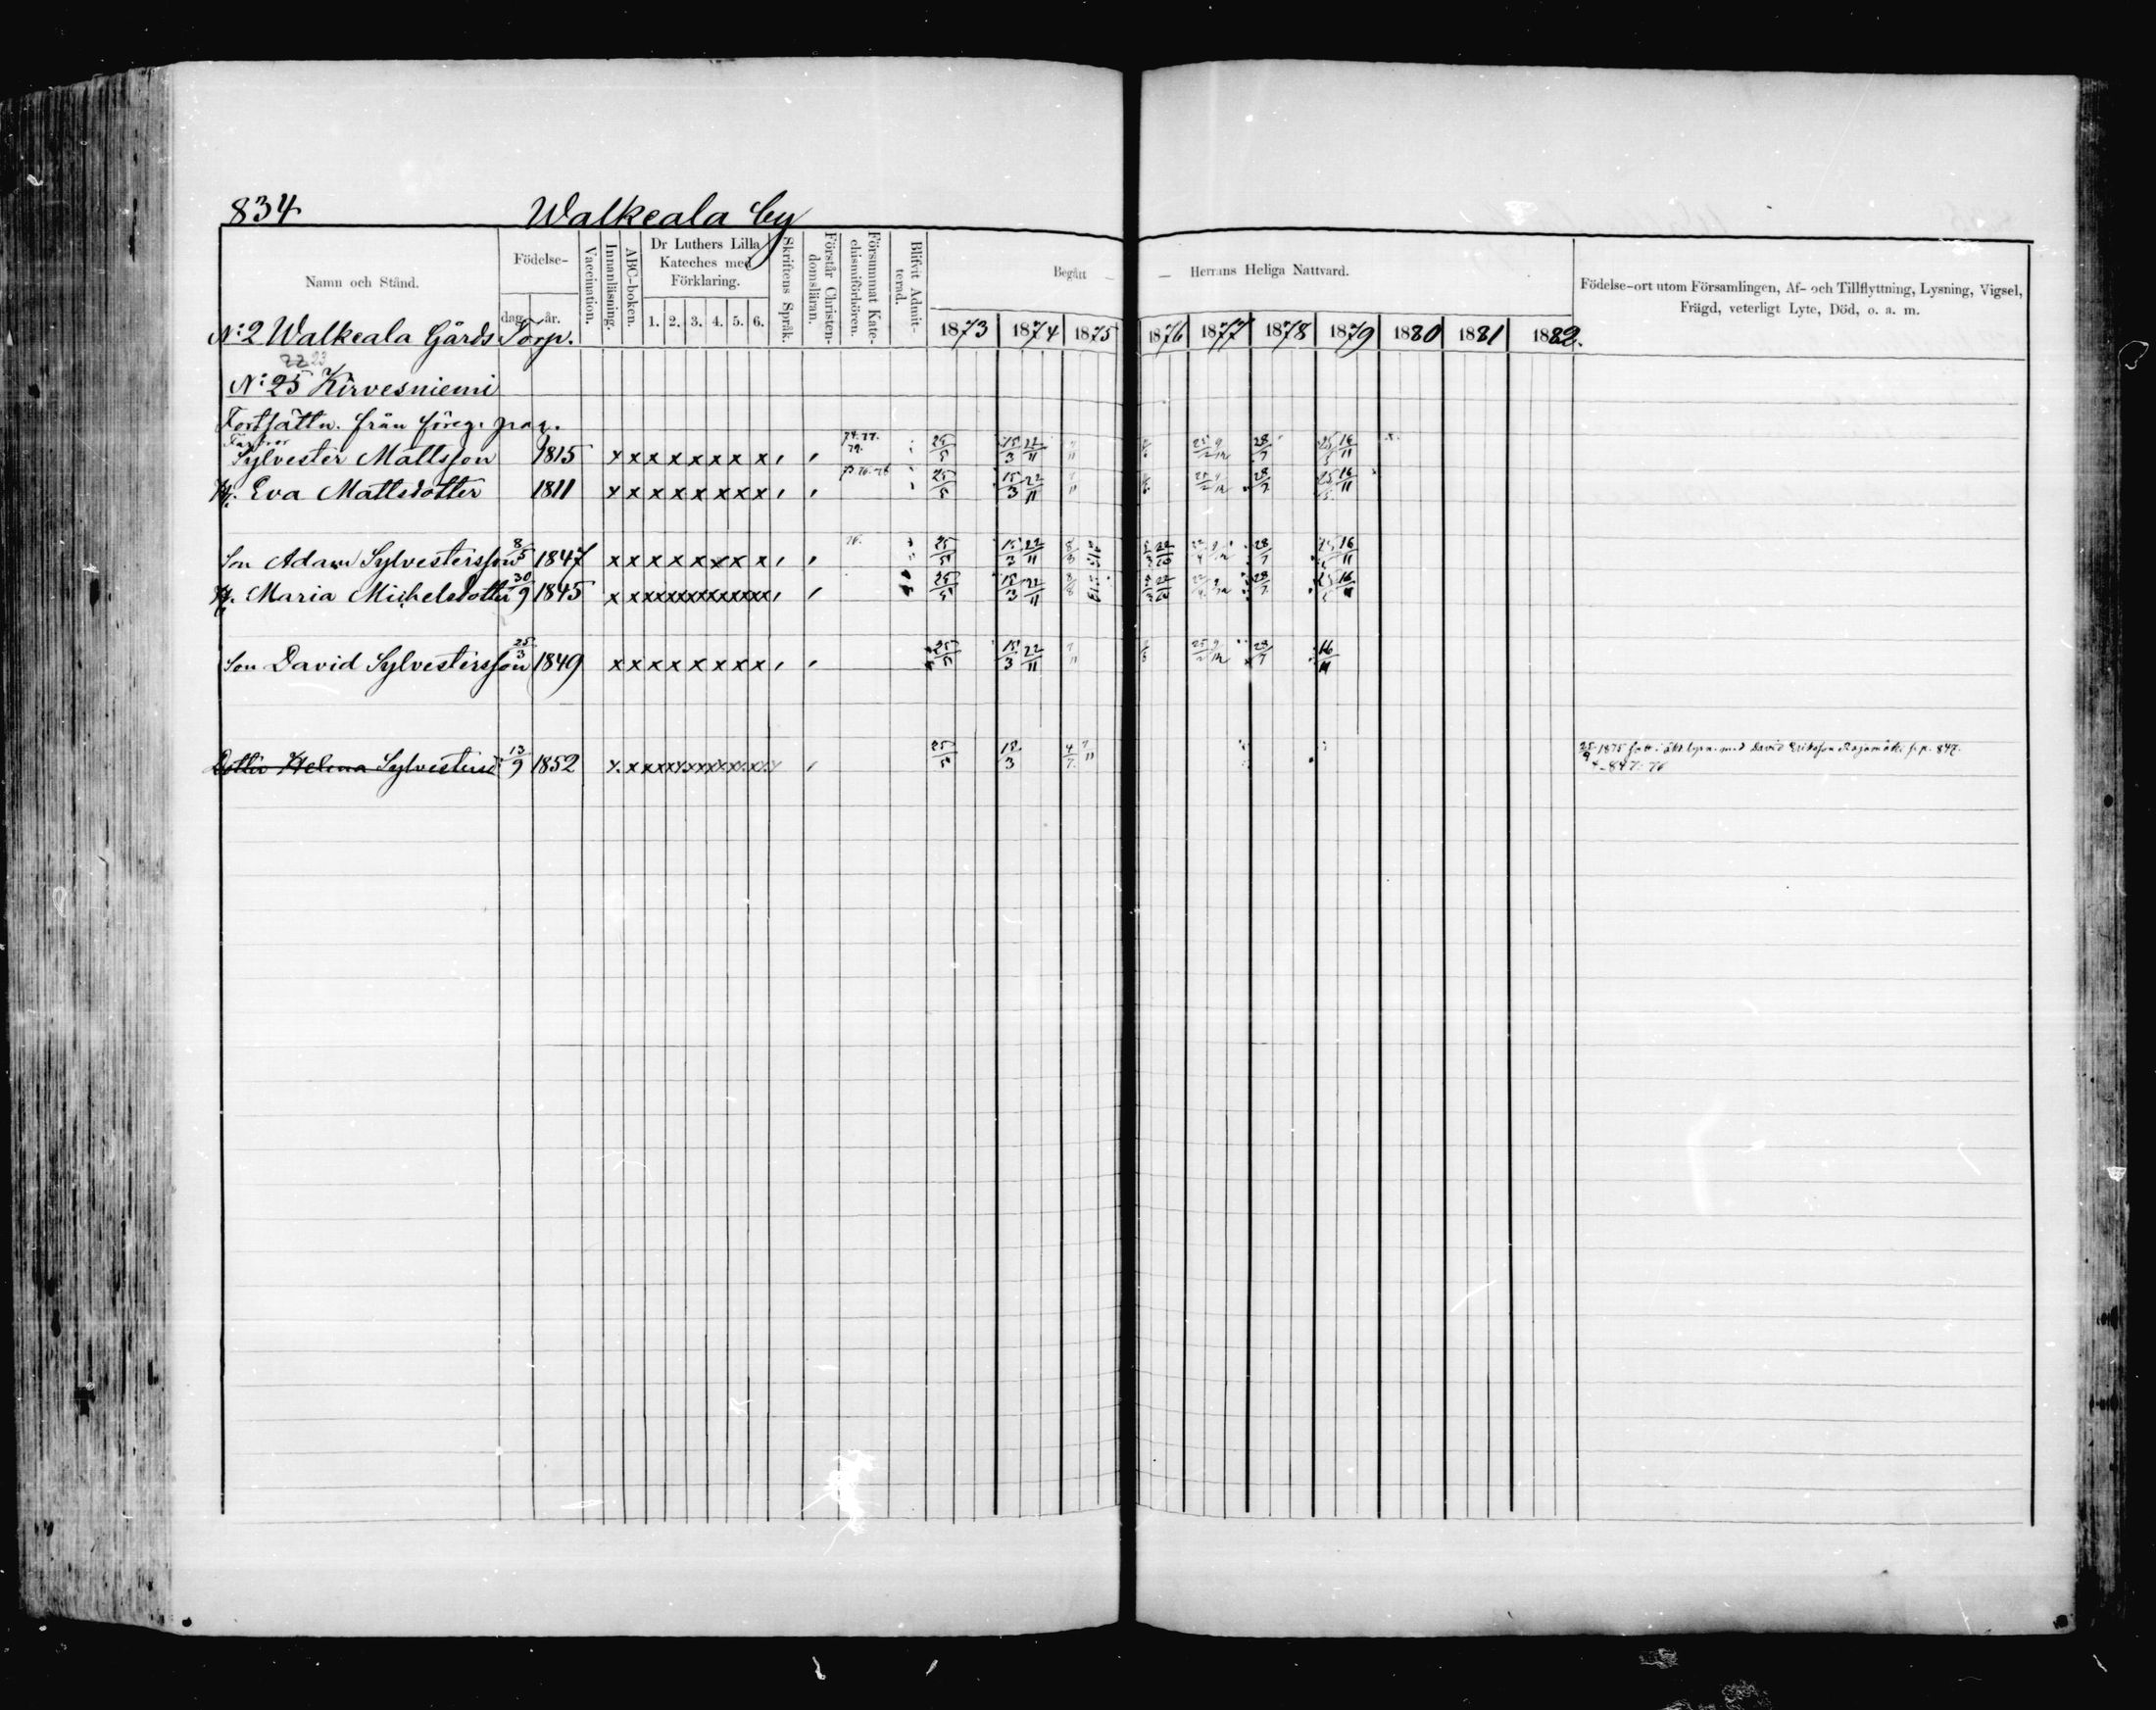 834 Walkeala by
Namn och Stånd. Födelse- dag. år. Vaccination. Innanläsning. ABC-boken. Dr Luthers Lilla Kateches med Förklaring. 1. 2. 3. 4. 5. 6. Skriftens Språk. Förstår Christen-domsläran. Försummat Kate-chismiförhören. Blifvit Admit-terad. Begått — — Herrans Heliga Nattvard. Födelse-ort utom Församlingen, Af- och Tillflyttning, Lysning, Vigsel, Frägd, veterligt Lyte, Död, o. a. m.
1873 1874 1875 1876 1877 1878 1879 1880 1881 1882.
N:2 Walkeala Gårds Torp.
22 23
N:25 Kirvesniemi
Fortsättn. från föreg. pag.
Farbror
Sylvester Mattsson 1815 x x x x x x x x 74. 77. 79. 25/5 15/3 22/11 28/7 25/5 16/11
H. Eva Mattsdotter 1811 x x x x x x x x 25/5 15/3 22/11 28/7 25/5 16/11
Son Adam Sylvestersson 8/5 1847 x x x x x x x x 25/5 15/3 22/11 28/7 25/5 16/11
H. Maria Michelsdotter 30/9 1845 x x x x x x x x 25/5 15/3 22/11 28/7 25/5 16/11
Son David Sylvestersson 25/3 1849 x x x x x x x x 25/5 15/3 22/11 25/2 9/12 28/7 16/11
Dotter Helena Sylvestersd: 13/9 1852 x x x x x x x x 25/5 15/3 4/7 25/9 1875 med David Eriksson Rajamäki s. p. 847.
847. 76